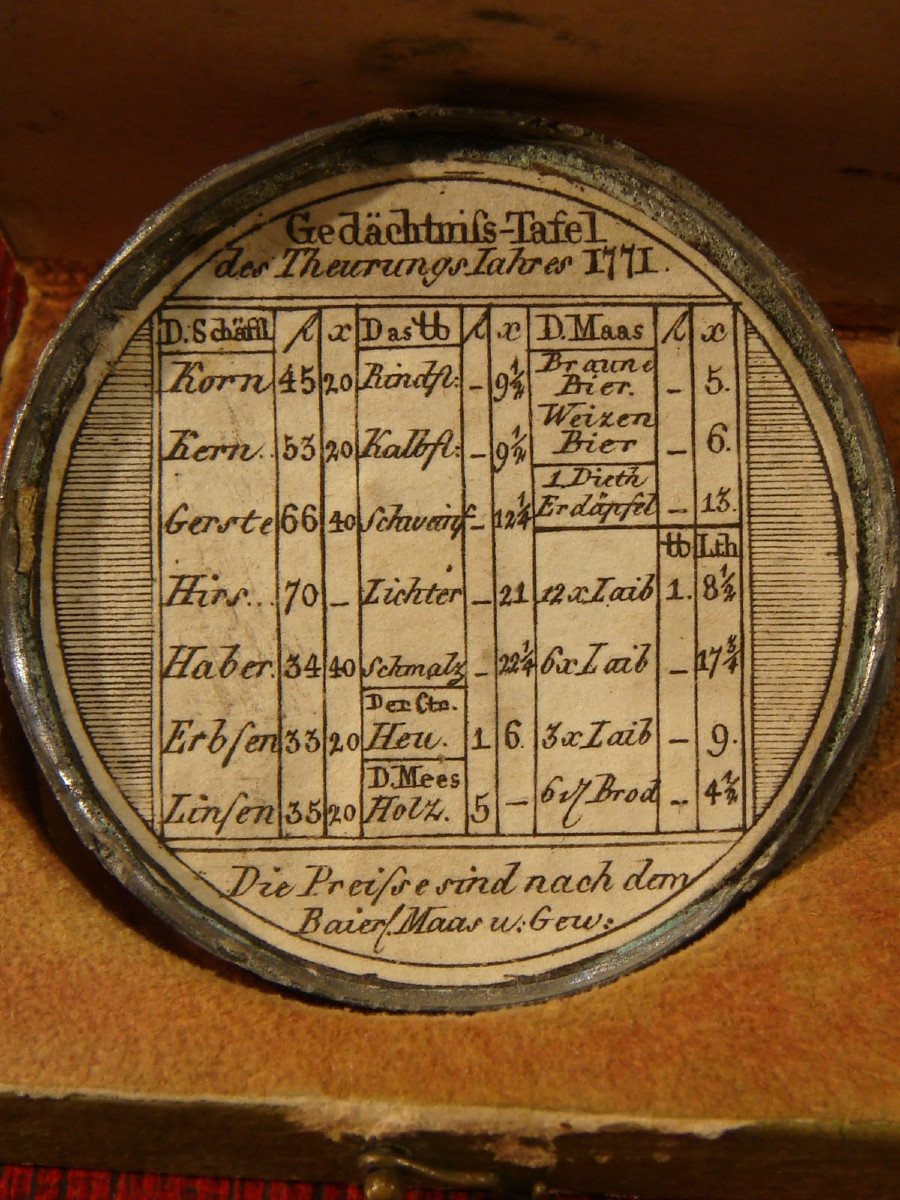 Gedächtniſs-Tafel
des Theurungs Iahres 1771.
D. Schäffl fl x Das ℔ fl x D. Maas fl x
Korn 45 20 Rindfl: – 9½ Braune Bier. – 5.
Kern.. 53 20 Kalbfl: – 9½ Weizen Bier – 6.
Gerste 66 40 Schweinf – 12¼ 1 Dieth Erdäpfel – 13.
℔ Lth
Hirs... 70 – Lichter – 21 12 x Laib 1. 8½
Haber. 34 40 Schmalz – 22¼ 6 x Laib – 17¾
Der Ctr.
Erbſen 33 20 Heu. 1 6. 3 x Laib – 9.
D. Mees
Linſen 35 20 Holz. 5 – 6 ₰ Brod – 4½
Die Preiſse sind nach dem
Baierſ. Maas u: Gew: